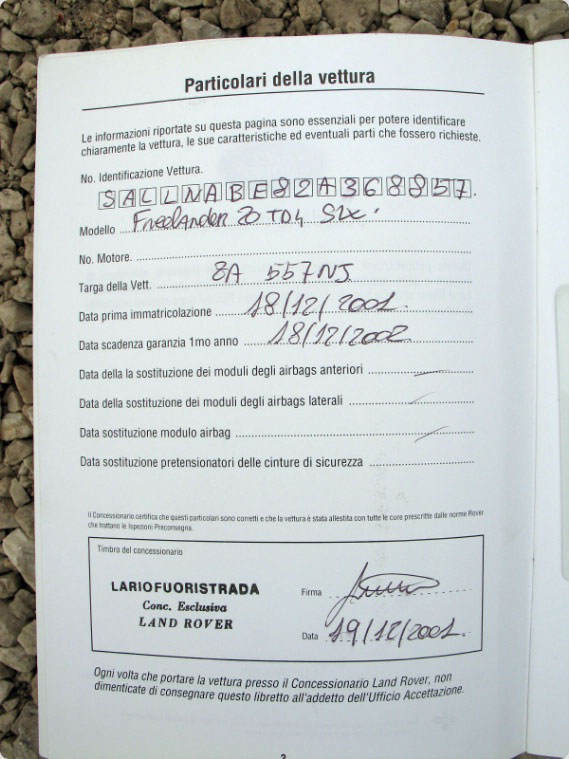 Particolari della vettura
Le informazioni riportate su questa pagina sono essenziali per potere identificare
chiaramente la vettura, le sue caratteristiche ed eventuali parti che fossero richieste.
No. Identificazione Vettura.
SALLNABE82A368857.
Modello Freelander 20 TD4 SW.
No. Motore.
Targa della Vett. ZA 557NJ
Data prima immatricolazione 18/12/2001.
Data scadenza garanzia 1mo anno 18/12/2002
Data della la sostituzione dei moduli degli airbags anteriori
Data della sostituzione dei moduli degli airbags laterali
Data sostituzione modulo airbag
Data sostituzione pretensionatori delle cinture di sicurezza
Il Concessionario certifica che questi particolari sono corretti e che la vettura è stata allestita con tutte le cure prescritte dalle norme Rover
che trattano le Ispezioni Preconsegna.
Timbro del concessionario
LARIOFUORISTRADA
Conc. Esclusiva
LAND ROVER
Firma
Data 19/12/2001.
Ogni volta che portare la vettura presso il Concessionario Land Rover, non
dimenticate di consegnare questo libretto all'addetto dell'Ufficio Accettazione.